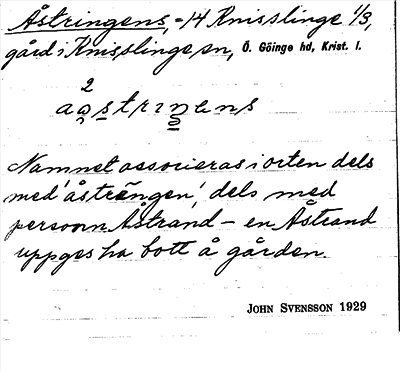 Åstringens, = 14 Knisslinge 1/3,
gård i Knisslinge sn, Ö. Göinge hd, Krist. l.
2
Namnet associeras i orten dels
med 'åsträngen', dels med
personn. Åstrand – en Åstrand
uppges ha bott å gården.
JOHN SVENSSON 1929